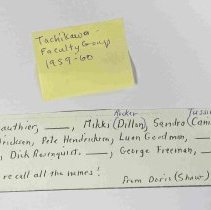 Tachikawa
Faculty Group
1959-60
Rocker
Jussin
authier, ___, Mikki (Dillon), Sandra (Cam
dricksen, Pete Hendrickson, Luan Goodman, ___
, Dick Rosenquist. ___, George Freeman, ___
recall all the names! From Doris (Shaw)